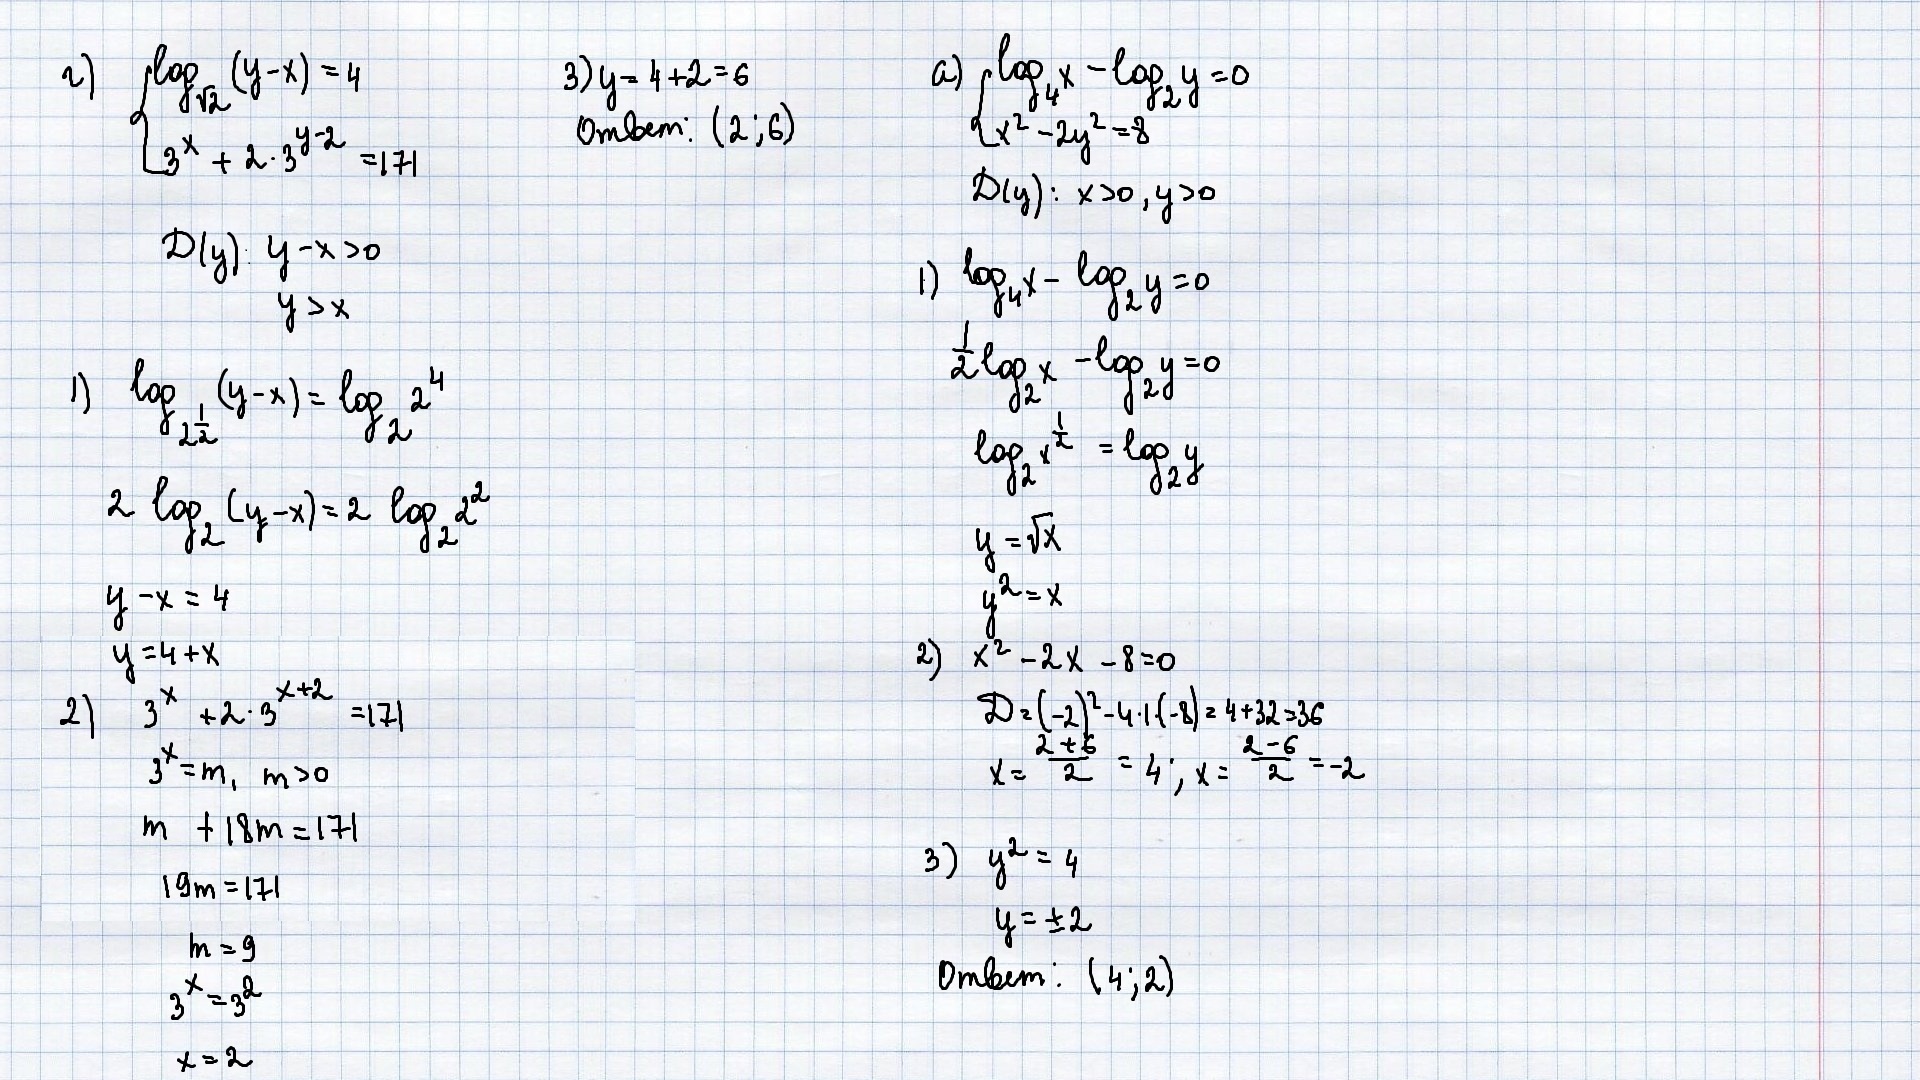 г) { log_√2 (y-x) = 4
3^x + 2·3^(y-2) = 171
D(y): y-x>0
y>x
1) log_2^(1/2) (y-x) = log_2 2^4
2 log_2 (y-x) = 2 log_2 2^2
y-x = 4
y = 4+x
2) 3^x + 2·3^(x+2) = 171
3^x = m, m>0
m + 18m = 171
19m = 171
m = 9
3^x = 3^2
x = 2
3) y = 4+2 = 6
Ответ: (2;6)
а) { log_4 x - log_2 y = 0
x² - 2y² = 8
D(y): x>0, y>0
1) log_4 x - log_2 y = 0
1/2 log_2 x - log_2 y = 0
log_2 x^(1/2) = log_2 y
y = √x
y² = x
2) x² - 2x - 8 = 0
D = (-2)² - 4·1·(-8) = 4+32 = 36
x = (2+6)/2 = 4; x = (2-6)/2 = -2
3) y² = 4
y = ±2
Ответ: (4;2)